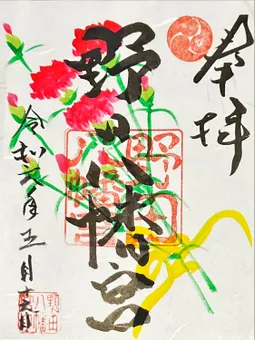 奉拝
野田八幡宮
野田八幡宮
令和六年五月十六日
野田八幡